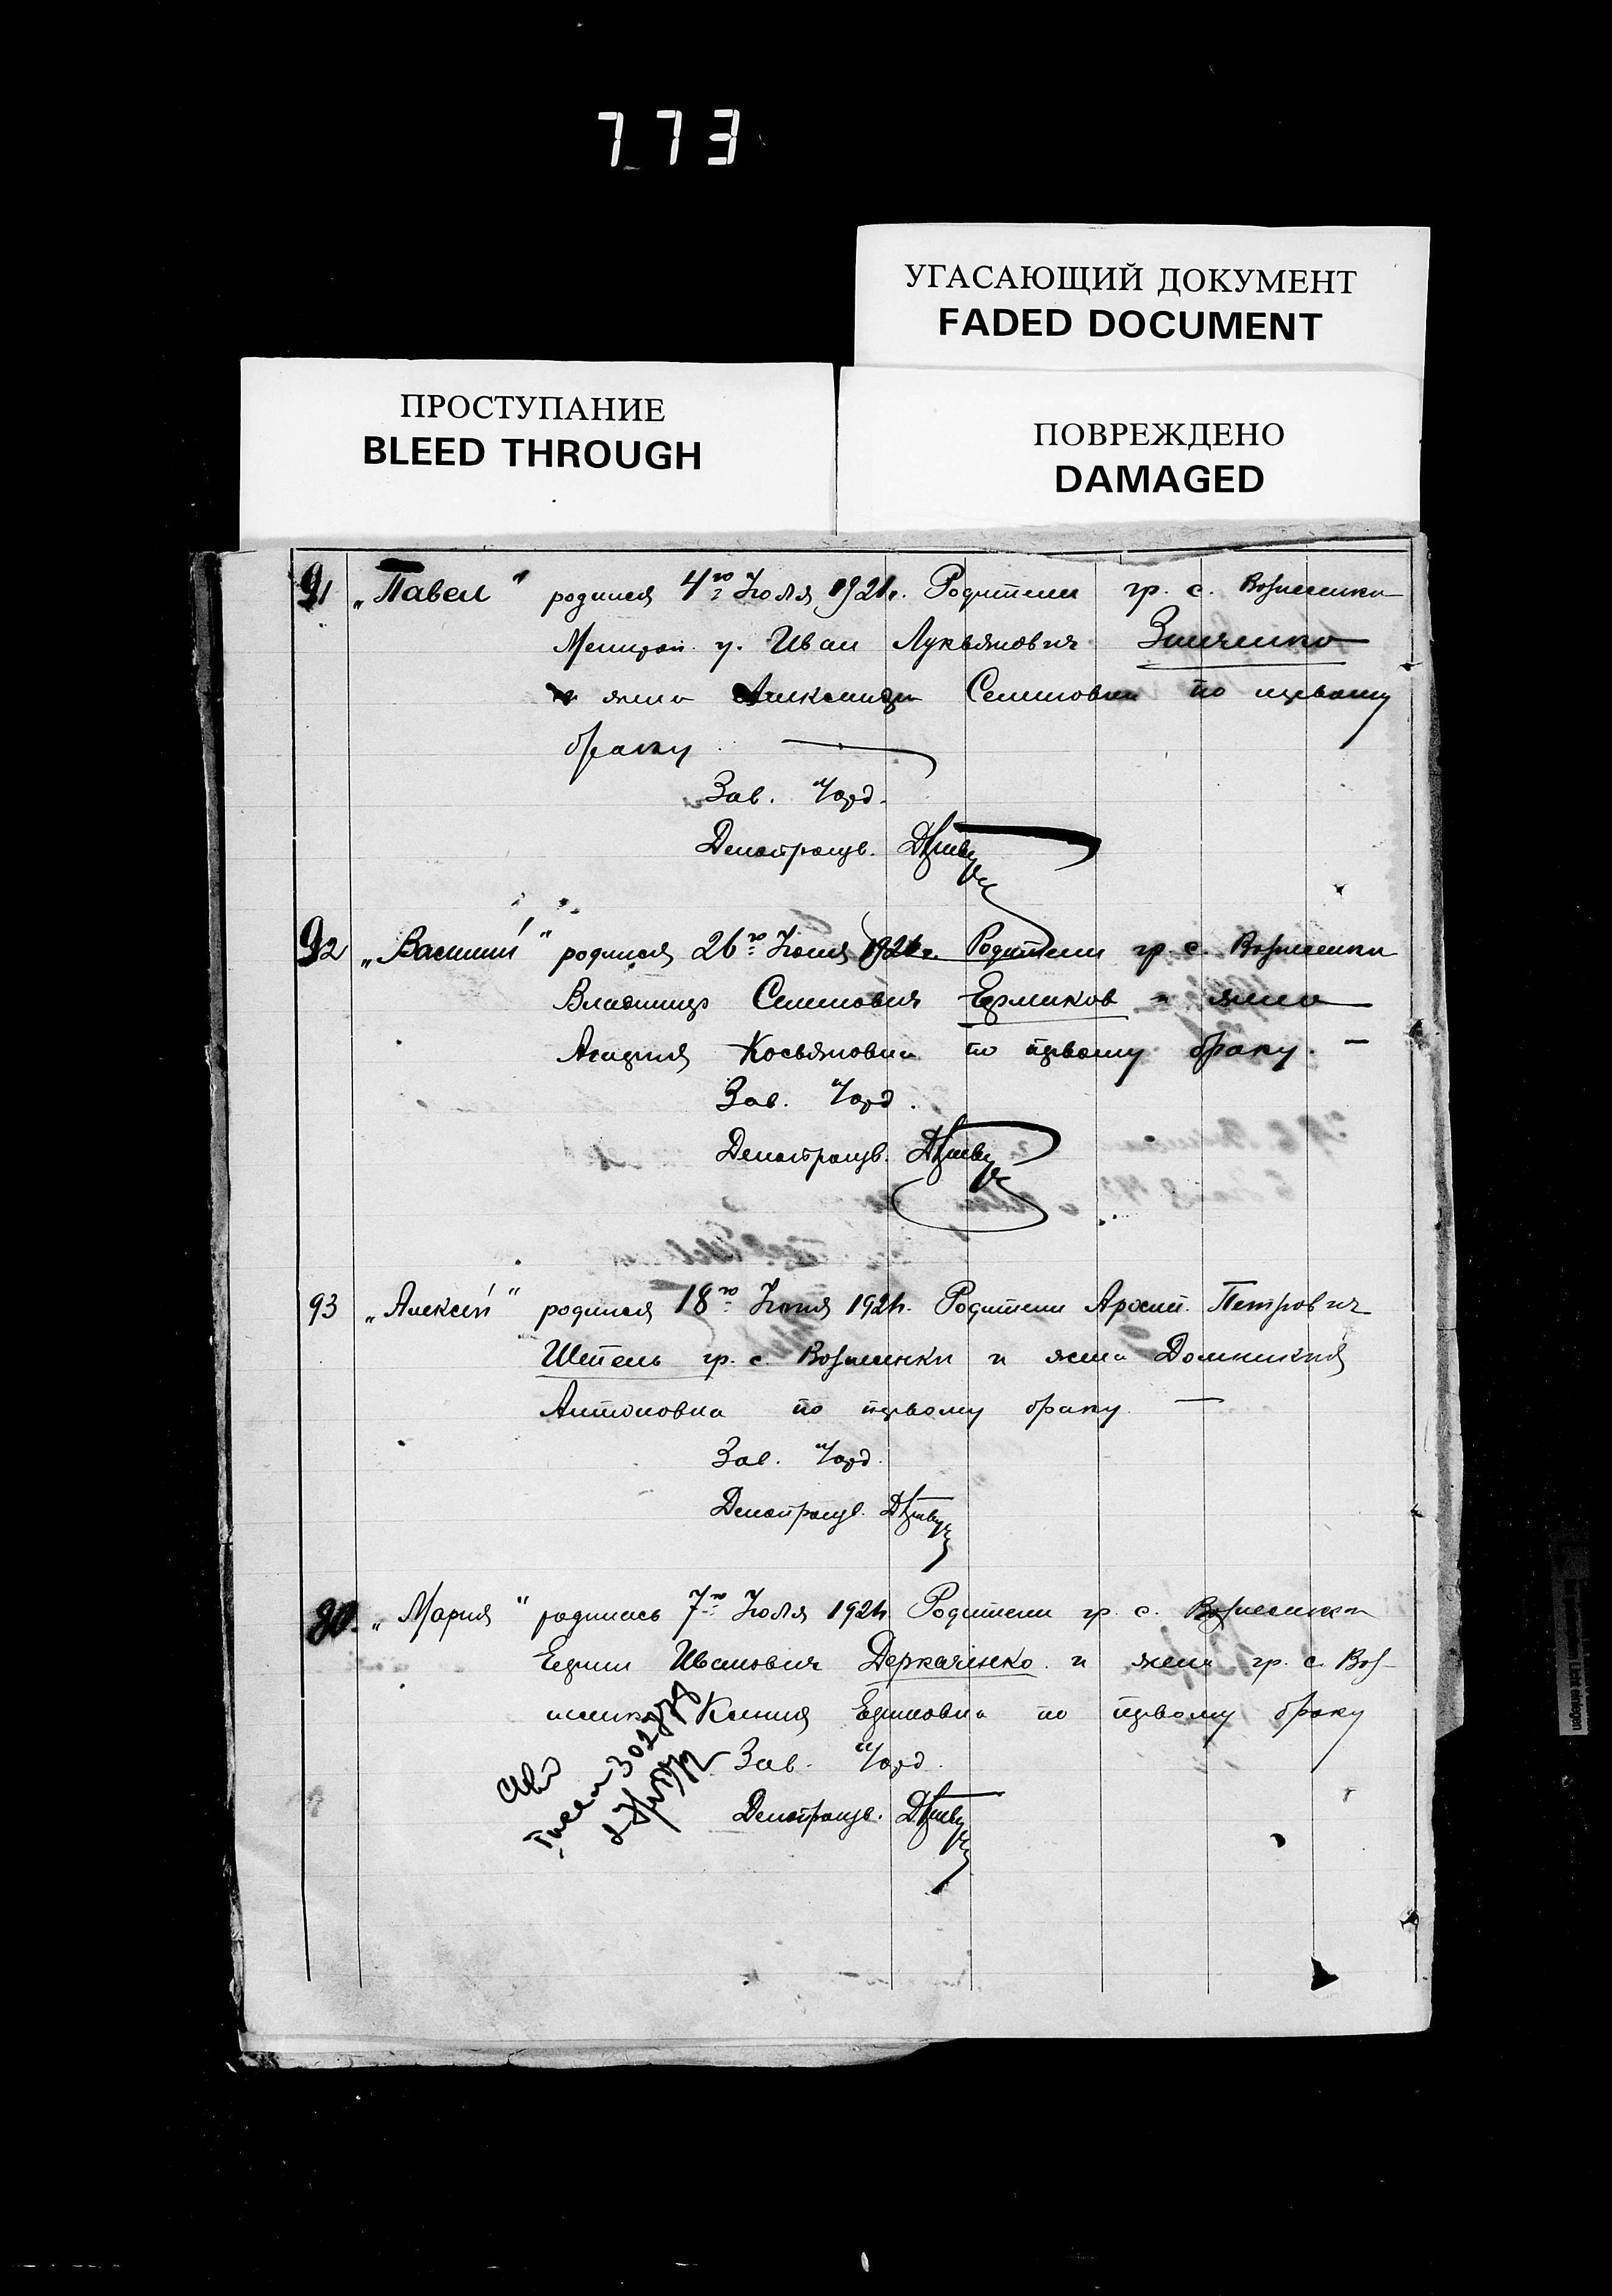 773
УГАСАЮЩИЙ ДОКУМЕНТ
FADED DOCUMENT
ПРОСТУПАНИЕ
BLEED THROUGH
ПОВРЕЖДЕНО
DAMAGED
91 „Павел" родился 4го Июля 1921г. Родители гр. с. Вознесенки
у. Иван Лукьянович Зинченко
и жена Александра Семеновна по первому
браку
Зав.
92 „Василий" родился 26го Июня 1921г. Родители гр. с. Вознесенки
Владимир Семенович Ермаков и жена
Косьяновна по первому браку. —
Зав.
93 „Алексей" родился 18го Июня 1921г. Родители Петрович
Шепель гр. с. Вознесенки и жена Домникия
Антоновна по первому браку —
Зав.
„Мария" родилась 7го Июля 1921г. Родители гр. с. Вознесенки
Ефим Иванович Деркаченко и жена гр. с. Воз-
несенки Ксения Ефимовна по первому браку
Зав.